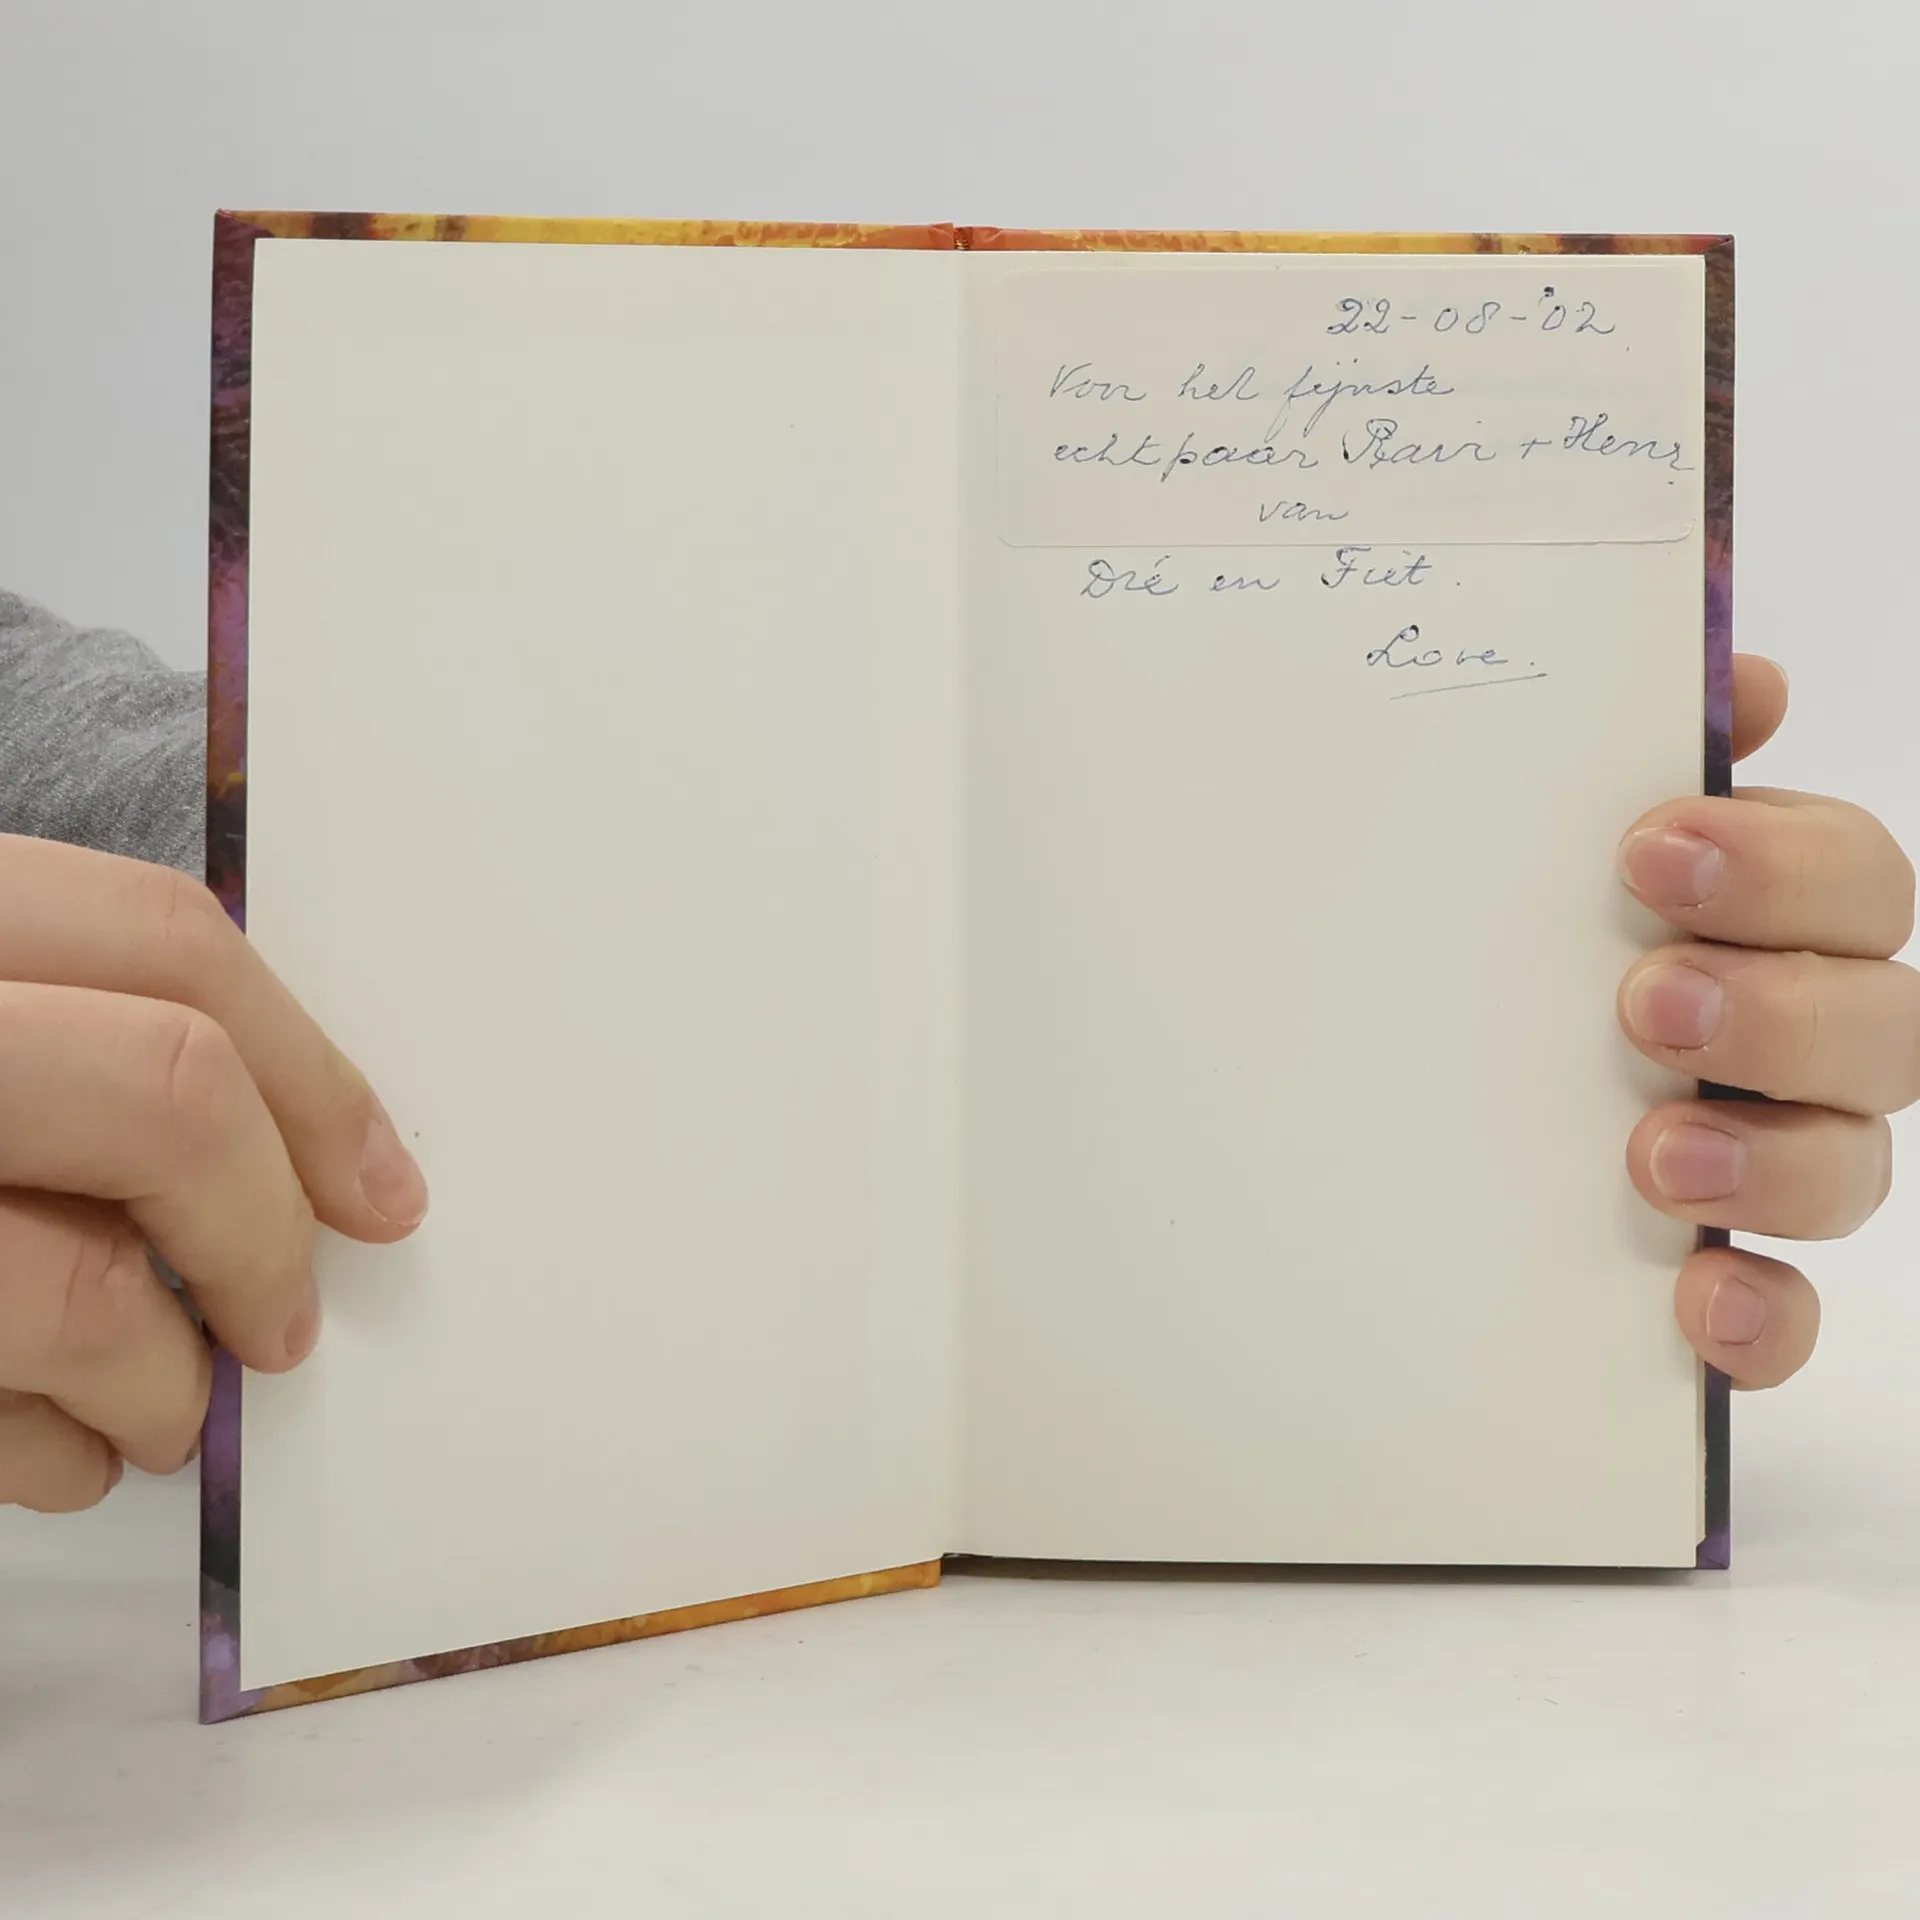 22-08-'02
Voor het fijnste
echtpaar Ravi + Henz
van
Dré en Fiet.
Love.